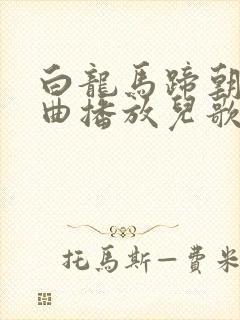 白龍馬蹄朝
曲播放兒歌
托馬斯—費米